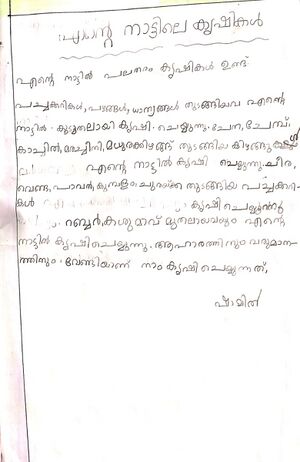 എന്റെ നാട്ടിലെ കൃഷികൾ
എന്റെ നാട്ടിൽ പലതരം കൃഷികൾ ഉണ്ട്
പച്ചക്കറികൾ, പഴങ്ങൾ, ധാന്യങ്ങൾ തുടങ്ങിയവ എന്റെ
നാട്ടിൽ കൂടുതലായി കൃഷി ചെയ്യുന്നു. ചേന, ചേമ്പ്,
കാച്ചിൽ, മരച്ചീനി, മധുരക്കിഴങ്ങ് തുടങ്ങിയ
എന്റെ നാട്ടിൽ കൃഷി ചെയ്യുന്നു. ചീര,
വെണ്ട, പാവൽ, കുമ്പളം, ചുരയ്ക്ക തുടങ്ങിയ പച്ചക്കറി-
കൾ കൃഷി ചെയ്യുന്നു
റബ്ബർ, കശുമാവ് മുതലായവയും എന്റെ
നാട്ടിൽ കൃഷി ചെയ്യുന്നു. ആഹാരത്തിനും വരുമാന-
ത്തിനും വേണ്ടിയാണ് നാം കൃഷി ചെയ്യുന്നത്.
ഷാമിൽ